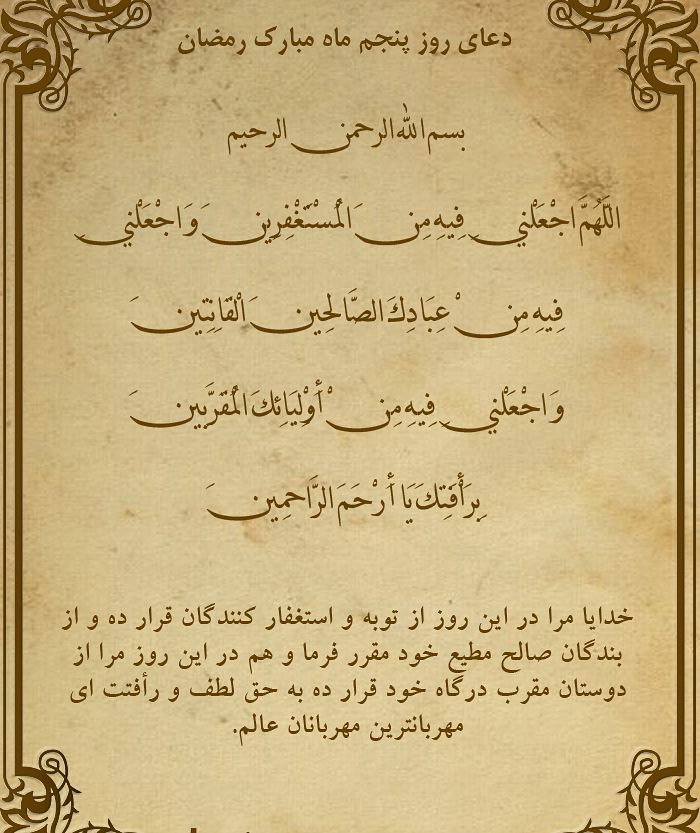 دعای روز پنجم ماه مبارک رمضان
بسم الله الرحمن الرحیم
اللَّهُمَّ اجْعَلْنِي فِيهِ مِنَ الْمُسْتَغْفِرِينَ وَ اجْعَلْنِي
فِيهِ مِنْ عِبَادِكَ الصَّالِحِينَ الْقَانِتِينَ
وَ اجْعَلْنِي فِيهِ مِنْ أَوْلِيَائِكَ الْمُقَرَّبِينَ
بِرَأْفَتِكَ يَا أَرْحَمَ الرَّاحِمِينَ
خدایا مرا در این روز از توبه و استغفار کنندگان قرار ده و از
بندگان صالح مطیع خود مقرر فرما و هم در این روز مرا از
دوستان مقرب درگاه خود قرار ده به حق لطف و رأفتت ای
مهربانترین مهربانان عالم.